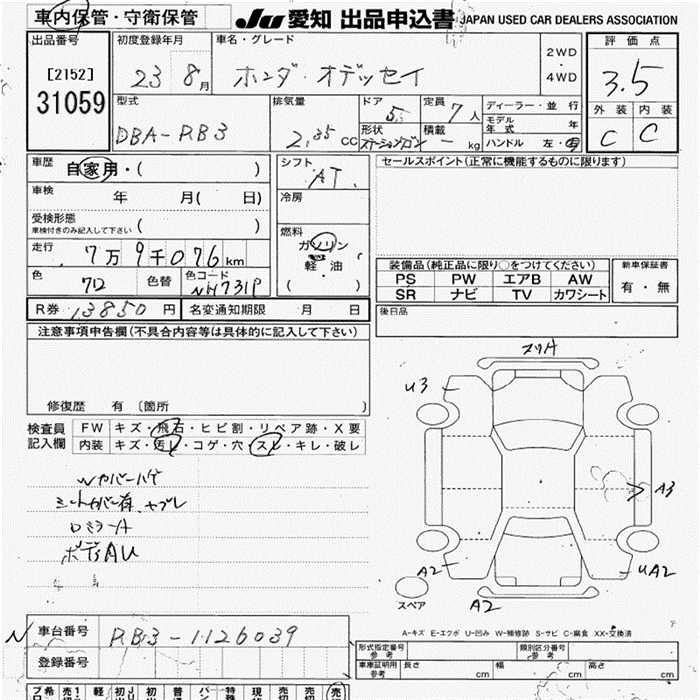 車内保管・守衛保管 JU 愛知 出品申込書 JAPAN USED CAR DEALERS ASSOCIATION
出品番号 初度登録年月 車名・グレード 評価点
[2152] 23 8月 ホンダ・オデッセイ 2WD・4WD 3.5
31059 型式 排気量 ドア 定員 ディーラー・並行 外装 内装
DBA-RB3 2.35cc 5 7人 モデル年式 年 C C
形状 ステーションワゴン 積載 － kg ハンドル 左・右
車歴 自家用・( ) シフト AT セールスポイント(正常に機能するものに限ります)
車検 年 月( 日) 冷房
受検形態 車検付きのみ記入して下さい ( )
燃料 ガソリン・軽・油 ( )
走行 7万9千076km
装備品(純正品に限り○をつけてください) 新車保証書
PS PW エアB AW 有・無
SR ナビ TV カワシート
色 712 色替 色コード NH731P
R券 13850円 名変通知期限 月 日 後日品
注意事項申告欄(不具合内容等は具体的に記入して下さい)
修復歴 有 〔箇所 〕
検査員記入欄 FW キズ・飛石・ヒビ割・リペア跡・X要
内装 キズ・汚レ・コゲ・穴・スレ・キレ・破レ
シートカバー有、ヤブレ
ボディAU
U3
A3
A2
UA2
A2
スペア
A-キズ E-エクボ U-凹み W-補修跡 S-サビ C-腐食 XX-交換済
N 車台番号 RB3-1126039
登録番号
形式指定番号 参考 類別区分番号 参考
車庫証明用 参考 長さ cm 幅 cm 高さ cm